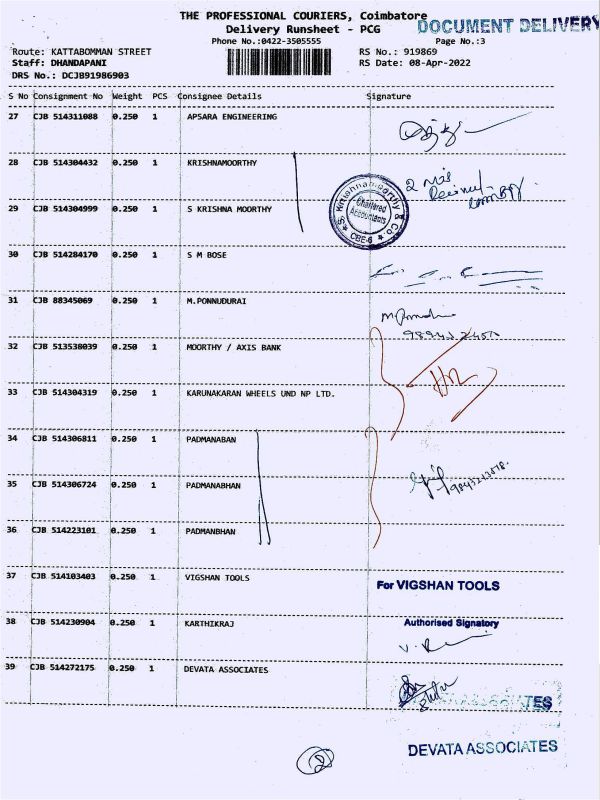 THE PROFESSIONAL COURIERS, Coimbatore
DOCUMENT DELIVERY
Delivery Runsheet - PCG
Phone No.:0422-3505555
Page No.:3
Route: KATTABOMMAN STREET
RS No.: 919869
Staff: DHANDAPANI
RS Date: 08-Apr-2022
DRS No.: DCJB91986903
S No Consignment No Weight PCS Consignee Details Signature
27 CJB 514311088 0.250 1 APSARA ENGINEERING
28 CJB 514304432 0.250 1 KRISHNAMOORTHY
2 Nos
Received
S. Krishnamoorthy & Co.
Chartered
Accountants
CBE-6
29 CJB 514304999 0.250 1 S KRISHNA MOORTHY
30 CJB 514284170 0.250 1 S M BOSE
31 CJB 88345069 0.250 1 M.PONNUDURAI
32 CJB 513538039 0.250 1 MOORTHY / AXIS BANK
33 CJB 514304319 0.250 1 KARUNAKARAN WHEELS UND NP LTD.
34 CJB 514306811 0.250 1 PADMANABAN
35 CJB 514306724 0.250 1 PADMANABHAN
36 CJB 514223101 0.250 1 PADMANBHAN
37 CJB 514103403 0.250 1 VIGSHAN TOOLS
For VIGSHAN TOOLS
38 CJB 514230904 0.250 1 KARTHIKRAJ
Authorised Signatory
39 CJB 514272175 0.250 1 DEVATA ASSOCIATES
DEVATA ASSOCIATES
2